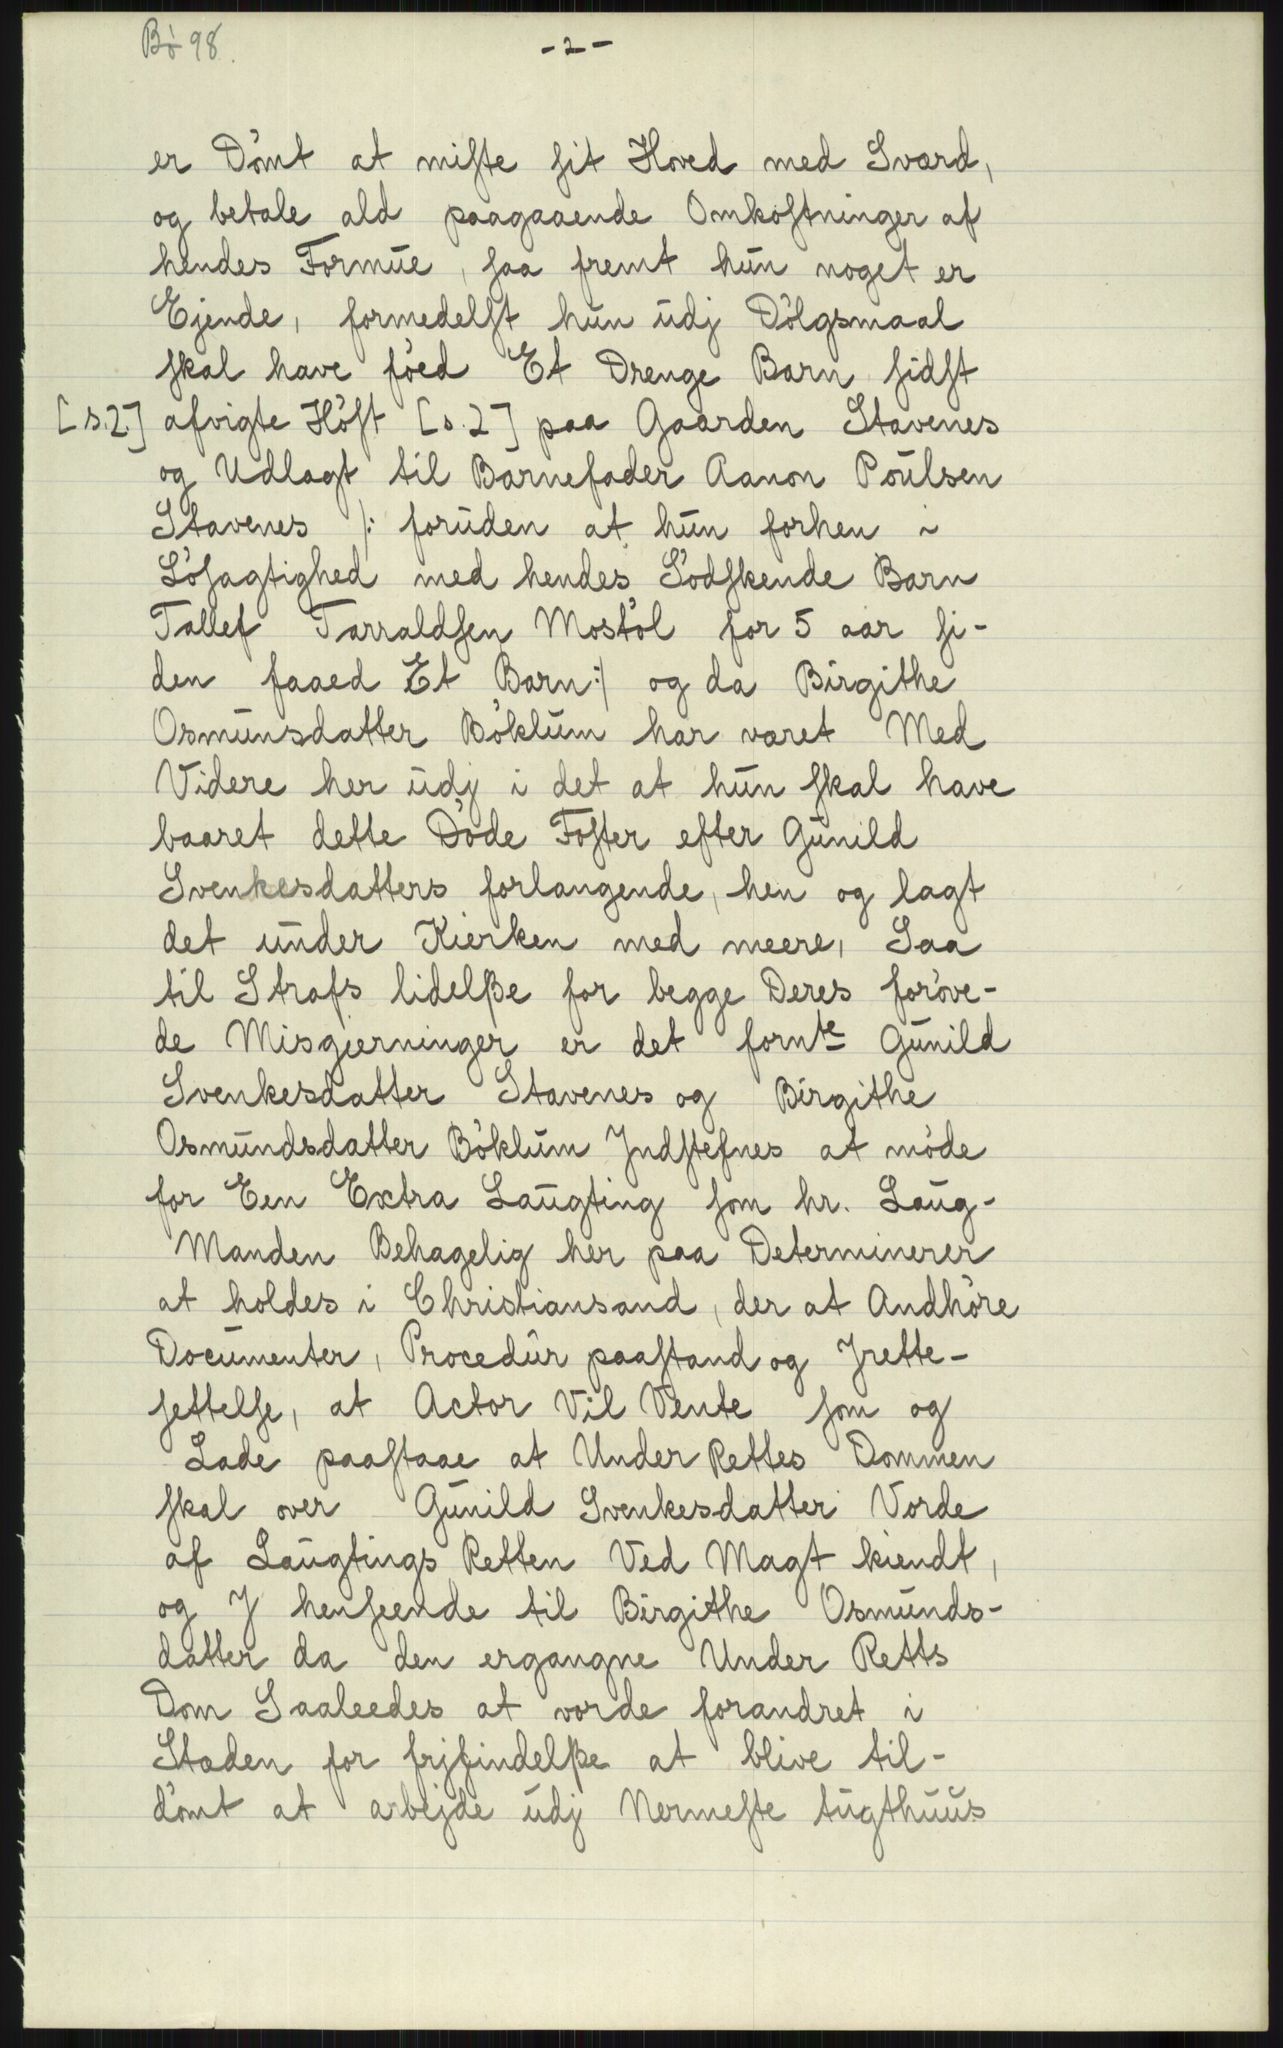 Bò 98.
- 2 -
er Dômt at miste sit Hoved med Sværd,
og betale ald paagaaende Omkostninger af
hendes Formue, saa fremt hun noget er
Ejende, formedelst hun udj Dölgsmaal
skal have föed Et Drenge Barn sidst
[s.2] afvigte Höst [s.2] paa Gaarden Stavenes
og Udlagt til Barnefader Aanon Poulsen
Stavenes /: foruden at hun forhen i
Lösagtighed med hendes Södskende Barn
Tallef Tarraldsen Mostöl for 5 aar si-
den faaed Et Barn:/ og da Birgithe
Osmunsdatter Böklum har været Med
Videre her udj i det at hun skal have
baaret dette Döde Foster efter Gunild
Svenkesdatters forlangende, hen og lagt
det under Kierken med meere, Saa
til Strafs lidelße for begge Deres foröve-
de Misgierninger er det fornte Gunild
Svenkesdatter Stavenes og Birgithe
Osmundsdatter Böklum Jndstefnes at möde
for Een Extra Laugting som hr. Laug-
Manden Behagelig her paa Determinerer
at holdes i Christiansand, der at Andhöre
Documenter, Procedur paastand og Jrette-
settelse, at Actor Vil Vente som og
Lade paastaae at Under Rettes Dommen
skal over Gunild Svenkesdatter Vorde
af Laugtings Retten Ved Magt kiendt,
og J henseende til Birgithe Osmunds-
datter da den ergangne Under Retts
Dom Saaleedes at vorde forandret i
Stæden for frjfindelße at blive til-
dömt at arbejde udj Nermeste tugthuus